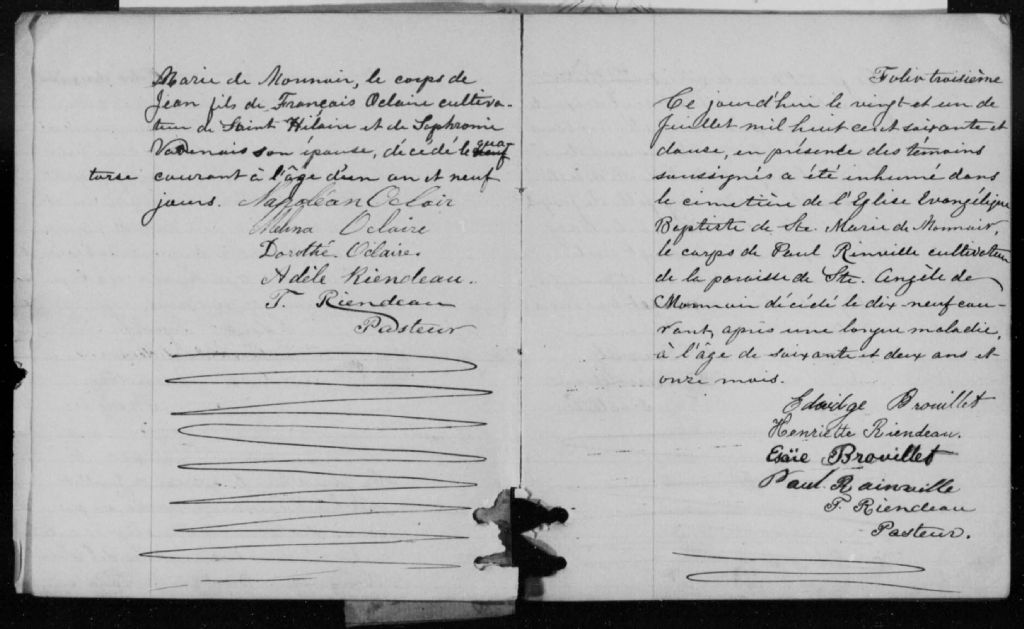 Marie de Monnoir, le corps de
Jean fils de François Oclaire cultiva-
teur de Saint Hilaire et de Sophronie
Vadenais son épouse, décédé le neuf qua-
torse courant à l'âge d'un an et neuf
jours. Napoléan Oclair
Melina Oclaire
Dorothé Oclaire.
Adèle Riendeau.
T. Riendeau
Pasteur
Folio troisième
Ce jourd'hui le vingt et un de
Juillet mil huit cent soixante et
douse, en présence des temoins
soussignés a été inhumé dans
le cimetière de l'Eglise Evangélique
Baptiste de Ste. Marie de Monnoir,
le corps de Paul Rinville cultivateur
de la paroisse de Ste. Angèle de
Monnoir décédé le dix-neuf cou-
rant, après une longue maladie,
à l'âge de soixante et deux ans et
onze mois.
Edwidge Brouillet
Henriette Riendeau.
Esaïe Brouillet
Paul Rainville
T. Riendeau
Pasteur.